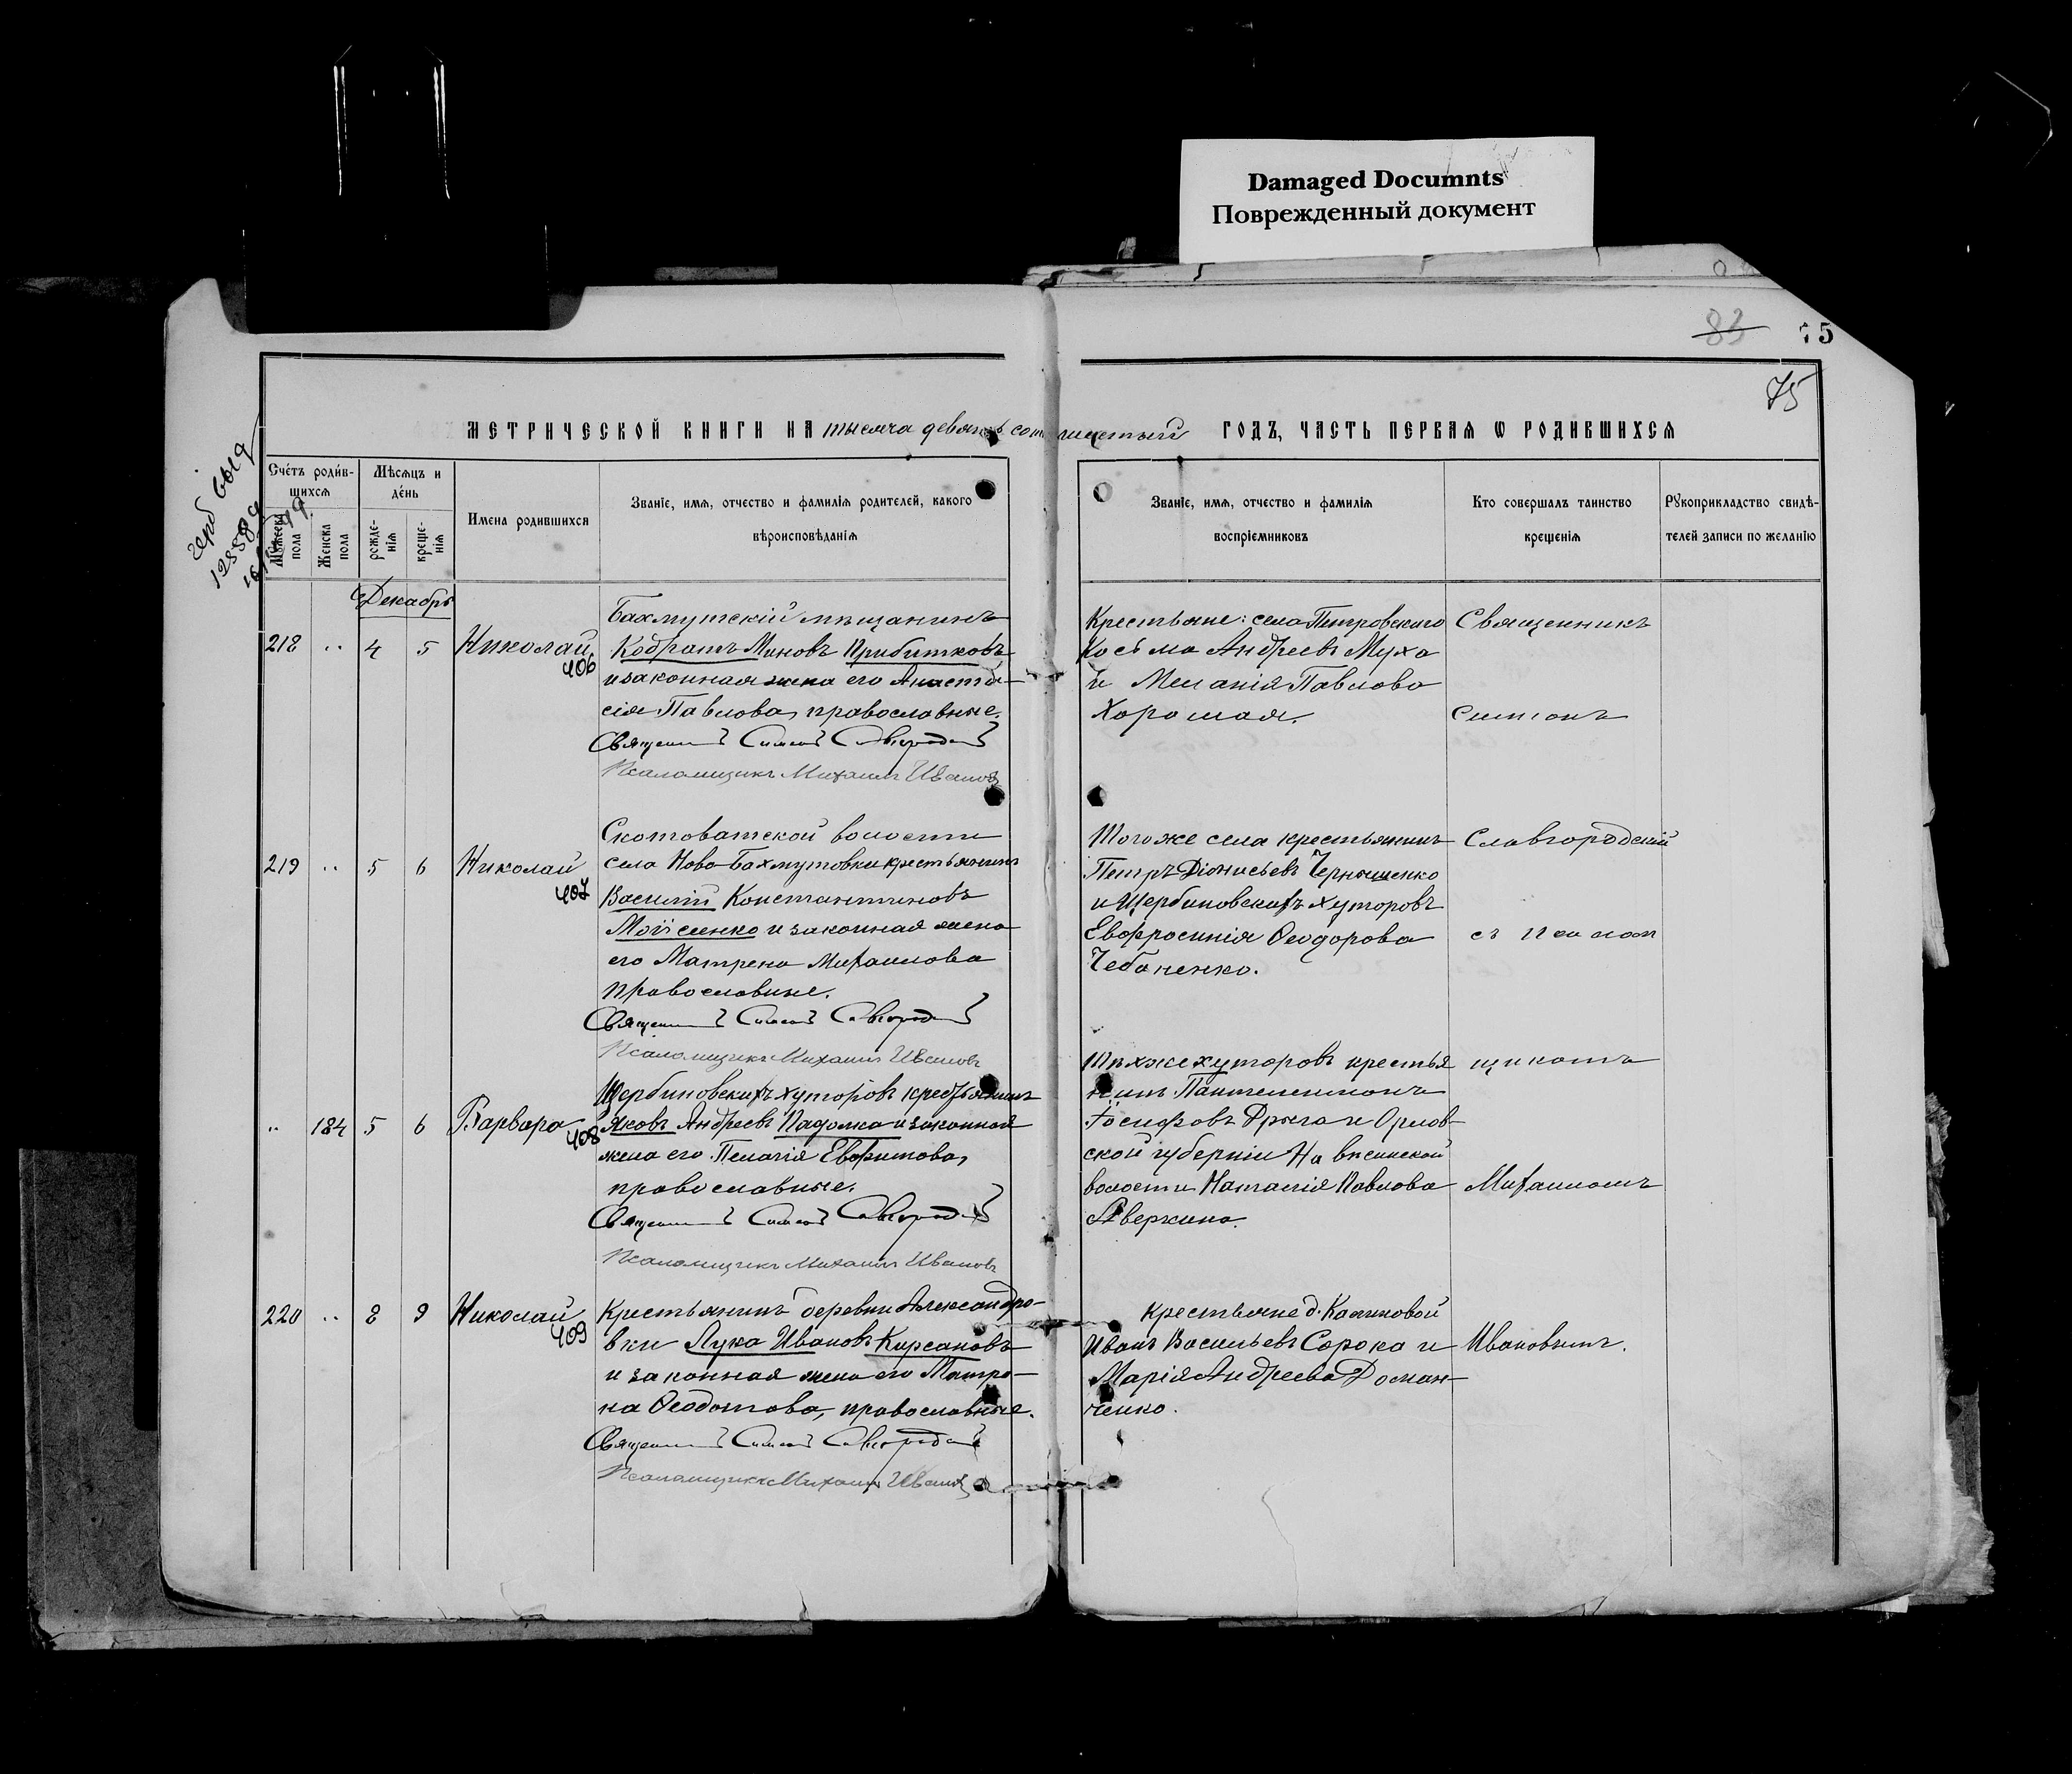 Damaged Documnts
Поврежденный документ
83
75
75
МЕТРИЧЕСКОЙ КНИГИ НА тысяча девятьсот шестый ГОДЪ, ЧАСТЬ ПЕРВАЯ Ѡ РОДИВШИХСЯ
Счетъ родившихся
Мѣсяцъ и день
Мужеска пола
Женска пола
рожденія
крещенія
Имена родившихся
Званіе, имя, отчество и фамилія родителей, какого
вѣроисповѣданія
Званіе, имя, отчество и фамилія
воспріемниковъ
Кто совершалъ таинство
крещенія
Рукоприкладство свидѣ-
телей записи по желанію
Декабрь
218 .. 4 5 Николай
406
Бахмутскій мѣщанинъ
Кодратъ Миновъ Прибитковъ
и законная жена его Анаста-
сія Павлова, православные.
Священникъ Симеонъ Славгородскій
Псаломщикъ Михаилъ Ивановъ
Крестьяне: села Петровскаго
Косьма Андреевъ Муха
и Меланія Павлова
Хорошая.
Священникъ
Симеонъ
219 .. 5 6 Николай
407
Скотоватской волости
села Ново-Бахмутовки крестьянинъ
Василій Константиновъ
Моисеенко и законная жена
его Матрена Михаилова
православные.
Священникъ Симеонъ Славгородскій
Псаломщикъ Михаилъ Ивановъ
Тогоже села крестьянинъ
Петръ Діонисьевъ Чернышенко
и Щербиновскихъ хуторовъ
Евфросинія Ѳеодорова
Чебаненко.
Славгородскій
съ псалом
.. 184 5 6 Варвара
408
Щербиновскихъ хуторовъ крестьянинъ
Яковъ Андреевъ Падалка и законная
жена его Пелагія Евфимова,
православные.
Священникъ Симеонъ Славгородскій
Псаломщикъ Михаилъ Ивановъ
Тѣхже хуторовъ крестья
нинъ Пантелеимонъ
Іосифовъ Дрыга и Орлов-
ской губерніи
волости Наталія Павлова
Аверкина.
щикомъ
Михаиломъ
220 .. 8 9 Николай
409
Крестьянинъ деревни Александро-
вки Лука Ивановъ Кирсановъ
и законная жена его Матро-
на Ѳеодотова, православные.
Священникъ Симеонъ Славгородскій
Псаломщикъ Михаилъ Ивановъ
Крестьяне д. Калиновой
Иванъ Васильевъ Сорока и
Марія Андреева Доман-
ченко.
Ивановымъ.